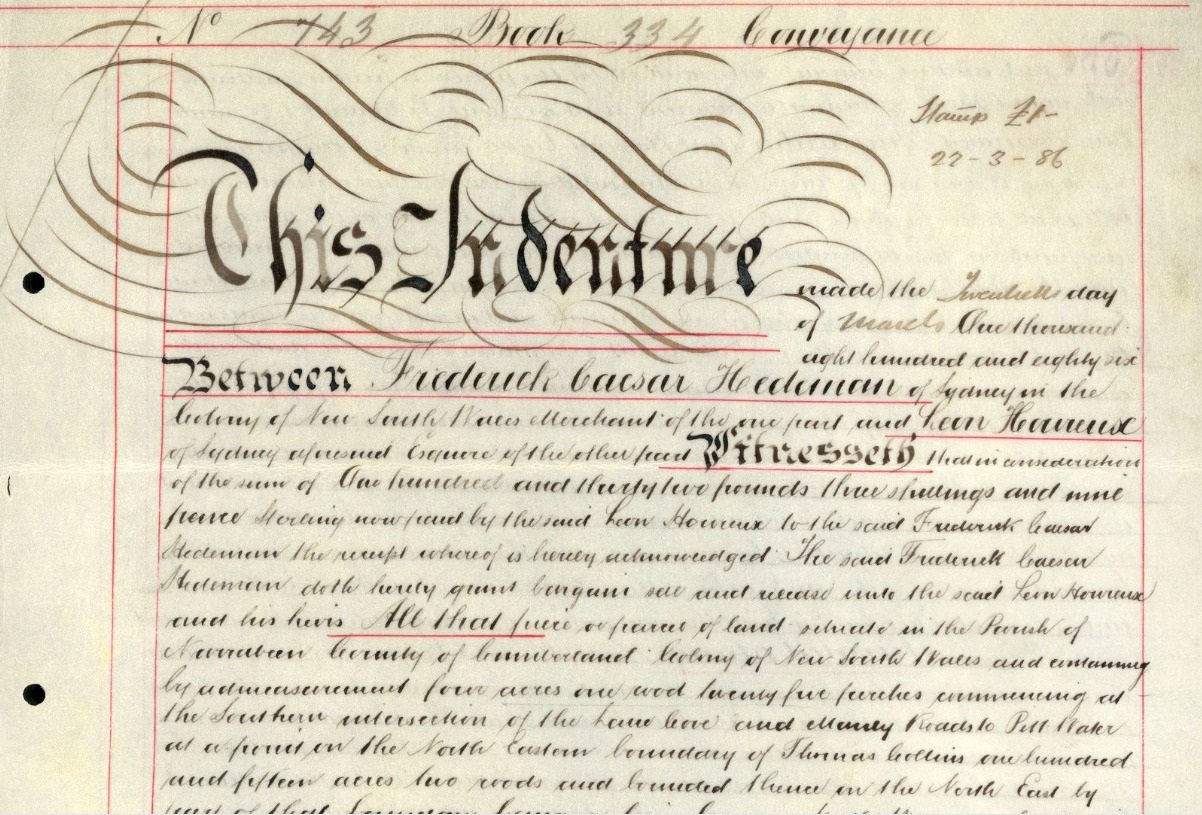 No 743 Book 334 Conveyance
Stamp £1-
22-3-86
This Indenture made the Twentieth day
of March One thousand
eight hundred and eighty six
Between Frederick Caesar Hedeman of Sydney in the
Colony of New South Wales Merchant of the one part and Leon Houreux
of Sydney aforesaid Esquire of the other part Witnesseth that in consideration
of the sum of One hundred and thirty two pounds three shillings and nine
pence Sterling now paid by the said Leon Houreux to the said Frederick Caesar
Hedeman the receipt whereof is hereby acknowledged The said Frederick Caesar
Hedeman doth hereby grant bargain sell and release unto the said Leon Houreux
and his heirs All that piece or parcel of land situate in the Parish of
Narrabeen County of Cumberland Colony of New South Wales and containing
by admeasurement four acres one rood twenty five perches commencing at
the Southern intersection of the Lane Cove and Manly Roads to Pitt Water
at a point on the North Eastern boundary of Thomas Collins one hundred
and fifteen acres two roods and bounded thence on the North East by
part of that boundary